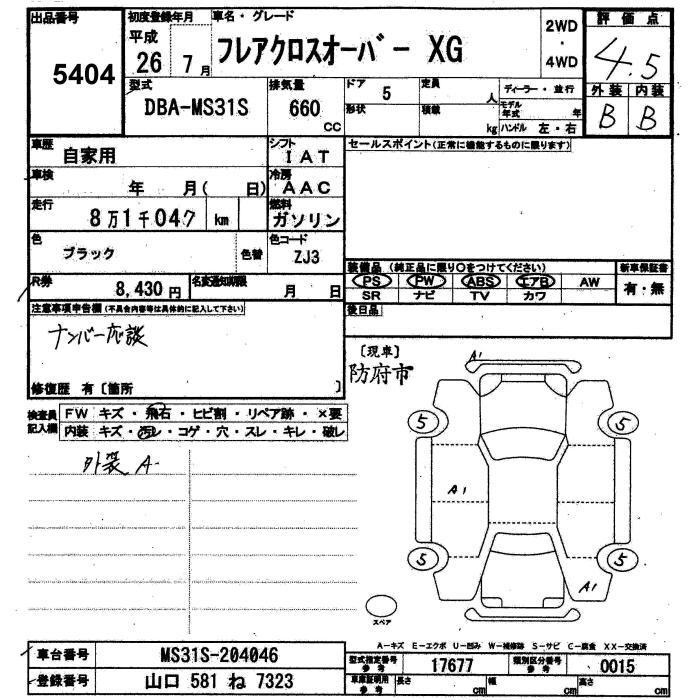 出品番号 初度登録年月 車名・グレード 2WD・4WD 評価点
5404 平成26 7月 フレアクロスオーバー XG 4.5
型式 排気量 ドア 定員 ディーラー・並行 外装 内装
DBA-MS31S 660 CC 5 人 モデル年式 年 B B
形状 積載 kg ハンドル 左・右
車歴 自家用 シフト IAT セールスポイント(正常に機能するものに限ります)
車検 年 月( 日) 冷房 AAC
走行 8万1千047 km 燃料 ガソリン
色 ブラック 色替 色コード ZJ3
装備品 (純正品に限り○をつけてください) 新車保証書
PS PW ABS エアB AW 有・無
SR ナビ TV カワ
R券 8,430円 名変通知期限 月 日
後日品
注意事項申告欄(不具合内容等は具体的に記入して下さい)
ナンバー応談
修復歴 有〔箇所 〕
〔現車〕
防府市
検査員記入欄 FW キズ・飛石・ヒビ割・リペア跡・×要
内装 キズ・汚レ・コゲ・穴・スレ・キレ・破レ
外装 A
A1
5 5
A1
5 5
A1
スペア
A-キズ E-エクボ U-凹み W-補修跡 S-サビ C-腐食 XX-交換済
車台番号 MS31S-204046
型式指定番号 参考 17677 類別区分番号 参考 0015
登録番号 山口 581 ね 7323
車庫証明用 参考 長さ cm 幅 cm 高さ cm